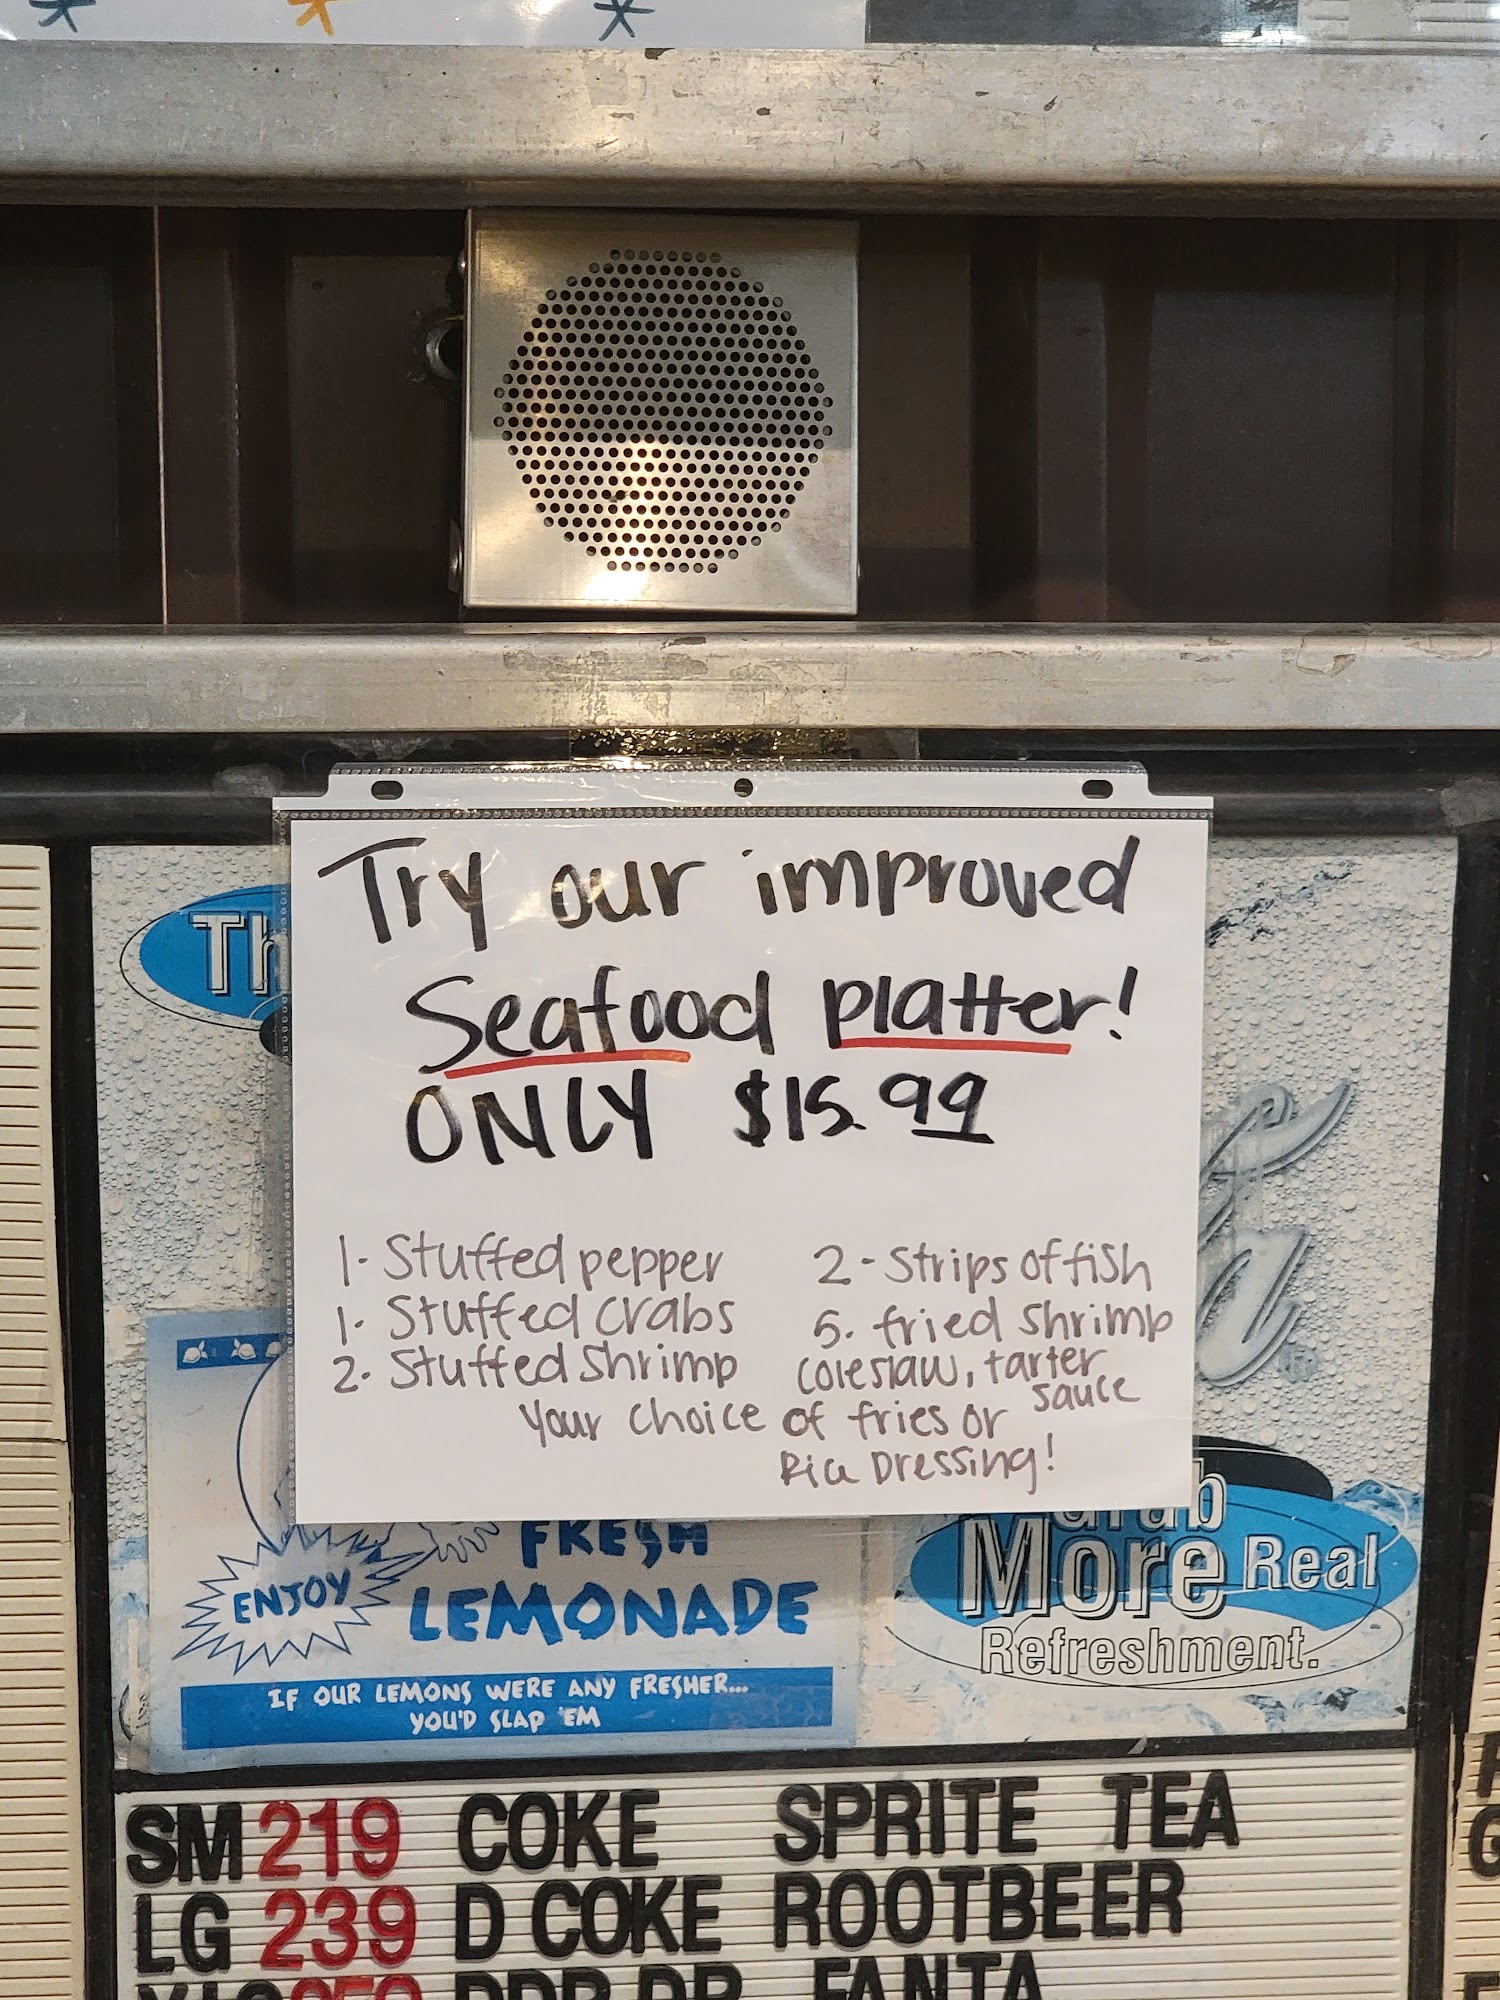 Try our improved
Seafood platter!
ONLY $15.99
1- Stuffed pepper
1. Stuffed crabs
2. Stuffed shrimp
2 - strips of fish
5. fried shrimp
coleslaw, tarter
sauce
your choice of fries or
Rice Dressing!
Th
Grab
More Real
Refreshment.
ENJOY
FRESH
LEMONADE
IF OUR LEMONS WERE ANY FRESHER...
YOU'D SLAP 'EM
SM 219 COKE SPRITE TEA
LG 239 D COKE ROOTBEER
FANTA